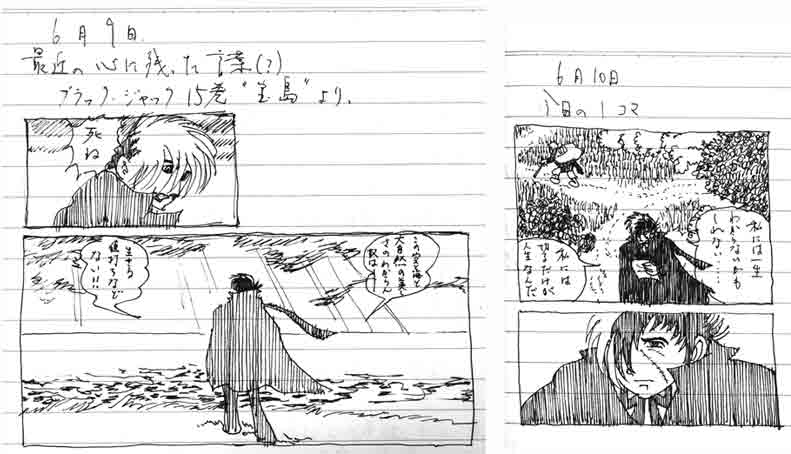 6月9日.
最近の心に残った言葉(?)
ブラック・ジャック 15巻 "宝島" より.
死ね
この空と海と
大自然の美し
さのわからん
奴は
生きる
値打ちなど
ない!!
6月10日
の1コマ
私には一生
わからないかも
しれない…
私には
切るだけが
人生なんだ